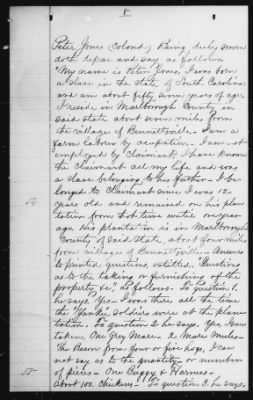 8
Peter Jones (Colored) Being duly sworn
doth depose and say as follows
"My name is Peter Jones, I was born
a slave in the State of South Carolina
and am about fifty seven years of age,
I reside in Marlborough County in
said state about seven miles from
the village of Bennettsville - I am a
farm laborer by occupation. I am not
employed by Claimant, I have known
the Claimant all my life and was
a slave belonging to his father - I be
longed to Claimant since I was 12
years old and remained on his plan
tation from that time until one year
ago. His plantation is in Marlborough
County of said State, about four miles
from village of Bennettsville - Answers
to printed questions entitled, "Questions
as to the taking or furnishing of the
property &c", as follows. To question 1.
he says. Yes - I was there all the time
the Yankee soldiers were at the plan-
tation. To question 2 he says. Yes I saw
taken One Grey Mare - 2 Mares Mules -
The Bacon from four or five hogs, I can
not say as to the quantity or number
of pieces - One Buggy & Harness -
about 100 chickens - To question 3. he says,